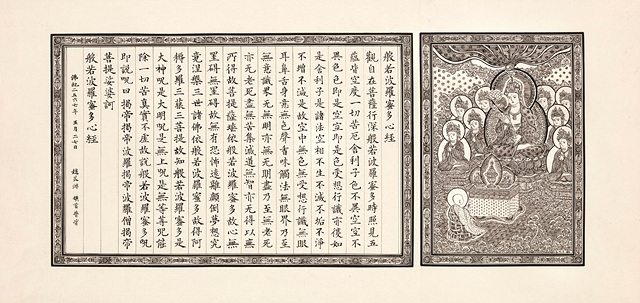 般若波羅蜜多心經
觀自在菩薩行深般若波羅蜜多時照見五
蘊皆空度一切苦厄舍利子色不異空空不
異色色即是空空即是色受想行識亦復如
是舍利子是諸法空相不生不滅不垢不淨
不增不減是故空中無色無受想行識無眼
耳鼻舌身意無色聲香味觸法無眼界乃至
無意識界無無明亦無無明盡乃至無老死
亦無老死盡無苦集滅道無智亦無得以無
所得故菩提薩埵依般若波羅蜜多故心無
罣礙無罣礙故無有恐怖遠離顛倒夢想究
竟涅槃三世諸佛依般若波羅蜜多故得阿
耨多羅三藐三菩提故知般若波羅蜜多是
大神呪是大明呪是無上呪是無等等呪能
除一切苦真實不虛故說般若波羅蜜多呪
即說呪曰揭帝揭帝波羅揭帝波羅僧揭帝
菩提娑婆訶
般若波羅蜜多心經
佛紀二五六七年 五月二七日